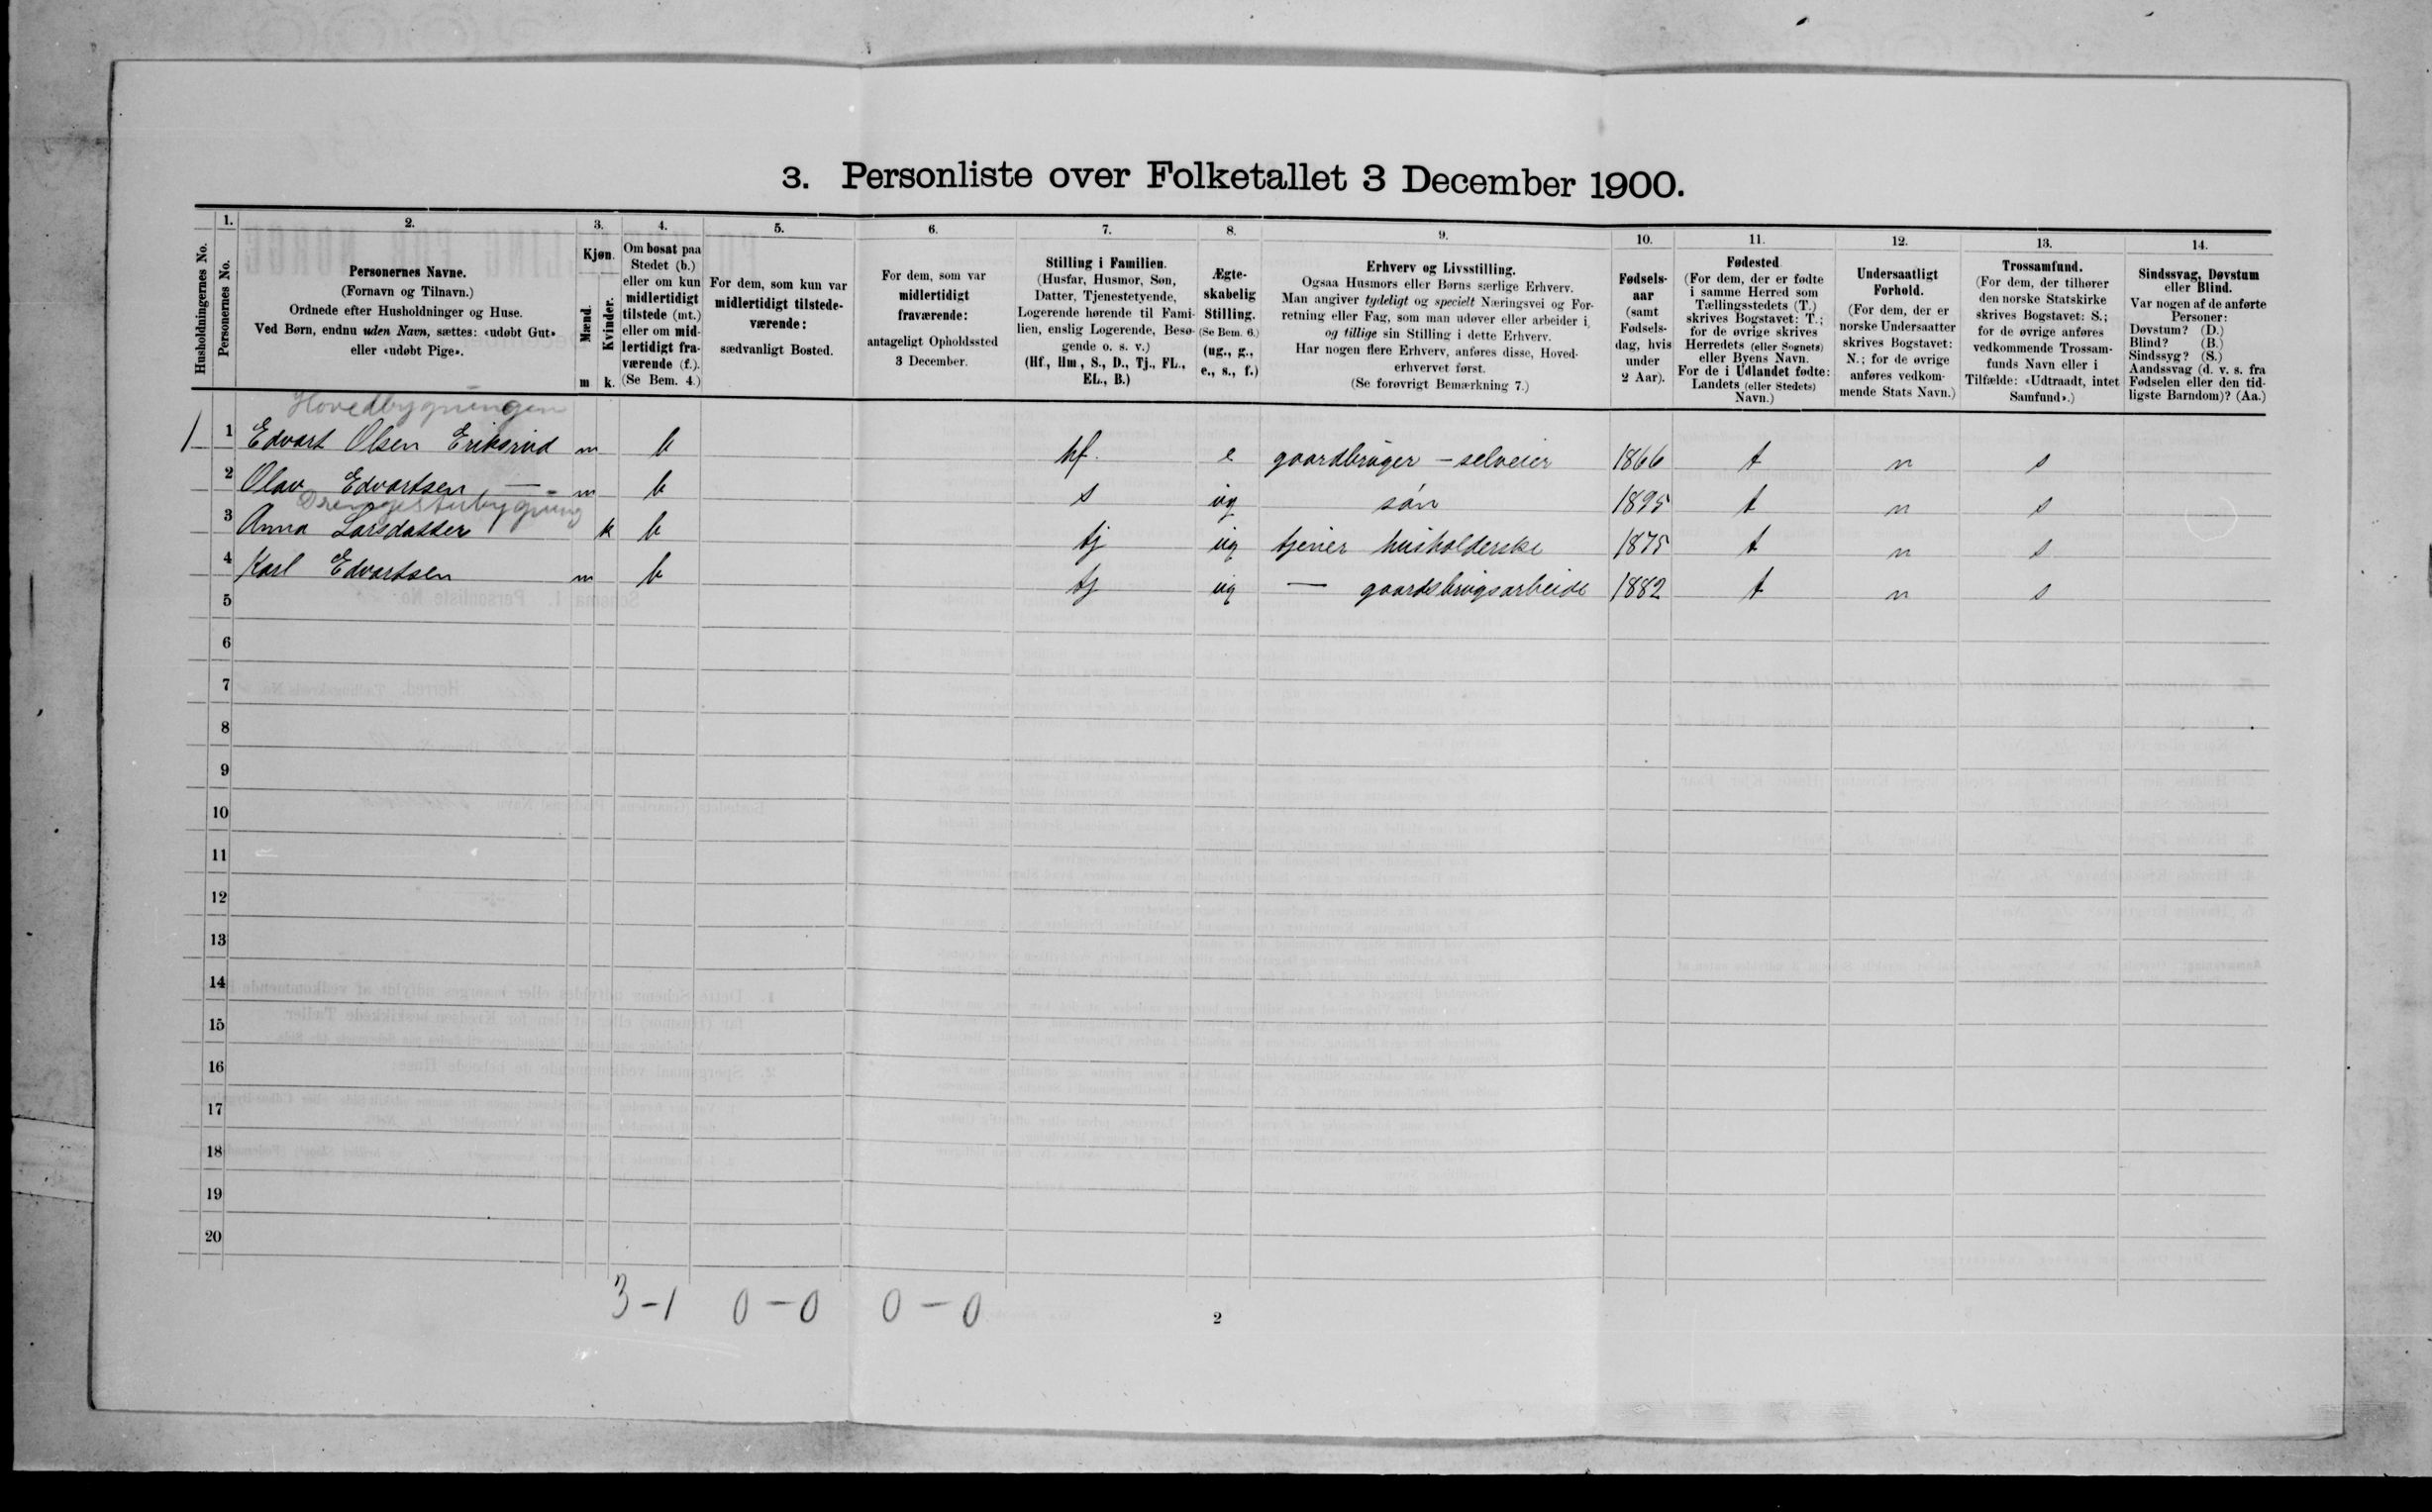 3. Personliste over Folketallet 3 December 1900.
Husholdningernes No.
1.
Personernes No.
2.
Personernes Navne.
(Fornavn og Tilnavn.)
Ordnede efter Husholdninger og Huse.
Ved Børn, endnu uden Navn, sættes: «udøbt Gut»
eller «udøbt Pige».
3.
Kjøn.
Mænd.
Kvinder.
m k.
4.
Om bosat paa
Stedet (b.)
eller om kun
midlertidigt
tilstede (mt.)
eller om mid-
lertidigt fra-
værende (f.).
(Se Bem. 4.)
5.
For dem, som kun var
midlertidigt tilstede-
værende:
sædvanligt Bosted.
6.
For dem, som var
midlertidigt
fraværende:
antageligt Opholdssted
3 December.
7.
Stilling i Familien.
(Husfar, Husmor, Søn,
Datter, Tjenestetyende,
Logerende hørende til Fami-
lien, enslig Logerende, Besø-
gende o. s. v.)
(Hf., Hm., S., D., Tj., FL.,
EL., B.)
8.
Ægte-
skabelig
Stilling.
(Se Bem. 6.)
(ug., g.,
e., s., f.)
9.
Erhverv og Livsstilling.
Ogsaa Husmors eller Børns særlige Erhverv.
Man angiver tydeligt og specielt Næringsvei og For-
retning eller Fag, som man udøver eller arbeider i,
og tillige sin Stilling i dette Erhverv.
Har nogen flere Erhverv, anføres disse, Hoved-
erhvervet først.
(Se forøvrigt Bemærkning 7.)
10.
Fødsels-
aar
(samt
Fødsels-
dag, hvis
under
2 Aar).
11.
Fødested
(For dem, der er fødte
i samme Herred som
Tællingsstedets (T.)
skrives Bogstavet: T.;
for de øvrige skrives
Herredets (eller Sognets)
eller Byens Navn.
For de i Udlandet fødte:
Landets (eller Stedets)
Navn.)
12.
Undersaatligt
Forhold.
(For dem, der er
norske Undersaatter
skrives Bogstavet:
N.; for de øvrige
anføres vedkom-
mende Stats Navn.)
13.
Trossamfund.
(For dem, der tilhører
den norske Statskirke
skrives Bogstavet: S.;
for de øvrige anføres
vedkommende Trossam-
funds Navn eller i
Tilfælde: «Udtraadt, intet
Samfund».)
14.
Sindssvag, Døvstum
eller Blind.
Var nogen af de anførte
Personer:
Døvstum? (D.)
Blind? (B.)
Sindssyg? (S.)
Aandssvag (d. v. s. fra
Fødselen eller den tid-
ligste Barndom)? (Aa.)
Hovedbygningen
1 1 Edvart Olsen Eriksrud m b hf. e gaardbruger - selveier 1866 t n s
2 Olav Edvartsen — - m b s ug søn 1895 t n s
Drengestubygning
3 Anna Larsdatter k b tj ug tjener husholderske 1875 t n s
4 Karl Edvartsen m b tj ug — gaardsbrugsarbeide 1882 t n s
5
6
7
8
9
10
11
12
13
14
15
16
17
18
19
20
3-1 0-0 0-0
2